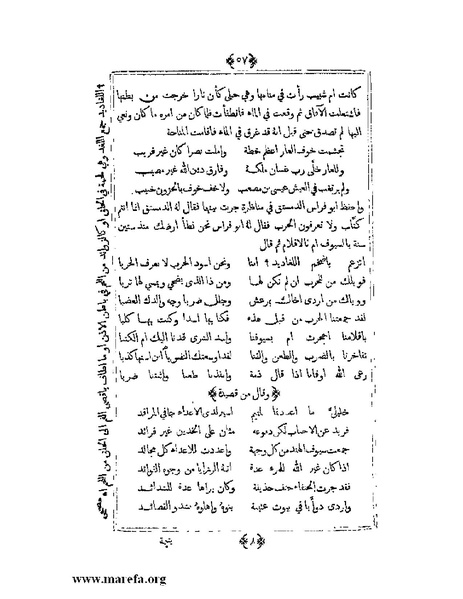 ﴿٥٧﴾
كانت ام شبيب رأت في منامها وهي حبلى كأن نارا خرجت من بطنها
فاشتعلت الآفاق ثم وقعت في الماء فانطفأت فلما كان من امره ما كان ونعي
اليها لم تصدق حتى قيل انه غرق في الماء فاقامت المناحة
تجشمت خوف العار أعظم خطة وأملت نصرا كان غير قريب
وللعار خلى رب غسان ملكه وفارق دين الله غير مصيب
ولم يرتغب في العيش عيسى بن مصعب ولا خف خوف الحرب قلب حبيب
واحفظ ابو فراس الدمستق في مناظرة جرت بينها فقال له الدمستق انما انتم
كتاب ولا تعرفون الحرب فقال له ابو فراس نحن نطأ ارضك منذ ستين
سنة بالسيوف ام بالاقلام ثم قال
اتزعم يا ضخم اللغاديد ؟ اننا ونحن اسود الحرب لا نعرف الحربا
فويلك من للحرب ان لم نكن لها ومن ذا الذي يضحي ويمسي لها تربا
وويلك من اردى اخاك بمرعش وجلل ضربا وجه والدك العضبا
لقد جمعتنا الحرب من قبل هذه فكنا بها اسدا وكنت بها كلبا
باقلامنا اجحرت ام بسيوفنا وأسد الشرى قدنا اليك ام الكتبا
تفاخرنا بالضرب والطعن والقنا لقد اوسعتك النفس يا ابن استها كذبا
رعى الله اوفانا اذا قال ذمة وانفذنا طعنا واثبتنا ضربا
﴿ وقال من قصيدة ﴾
خليلي ما اعددتما لمتيم اسير لدى الاعداء جافي المراقد
فريد عن الاحباب لكن دموعه مثان على الخدين غير فرائد
جمعت سيوف الهند من كل وجهة واعددت للاعداء كل مجالد
اذا كان غير الله للمرء عدة اتته الرزايا من وجوه الفوائد
فقد جرت الحنفاء حتف حذيفة وكان يراها عدة للشدائد
واردى ذؤابا في بيوت عتيبة بنوه واهلوه بشدو القصائد
﴿٨﴾
يتيمة
www.marefa.org